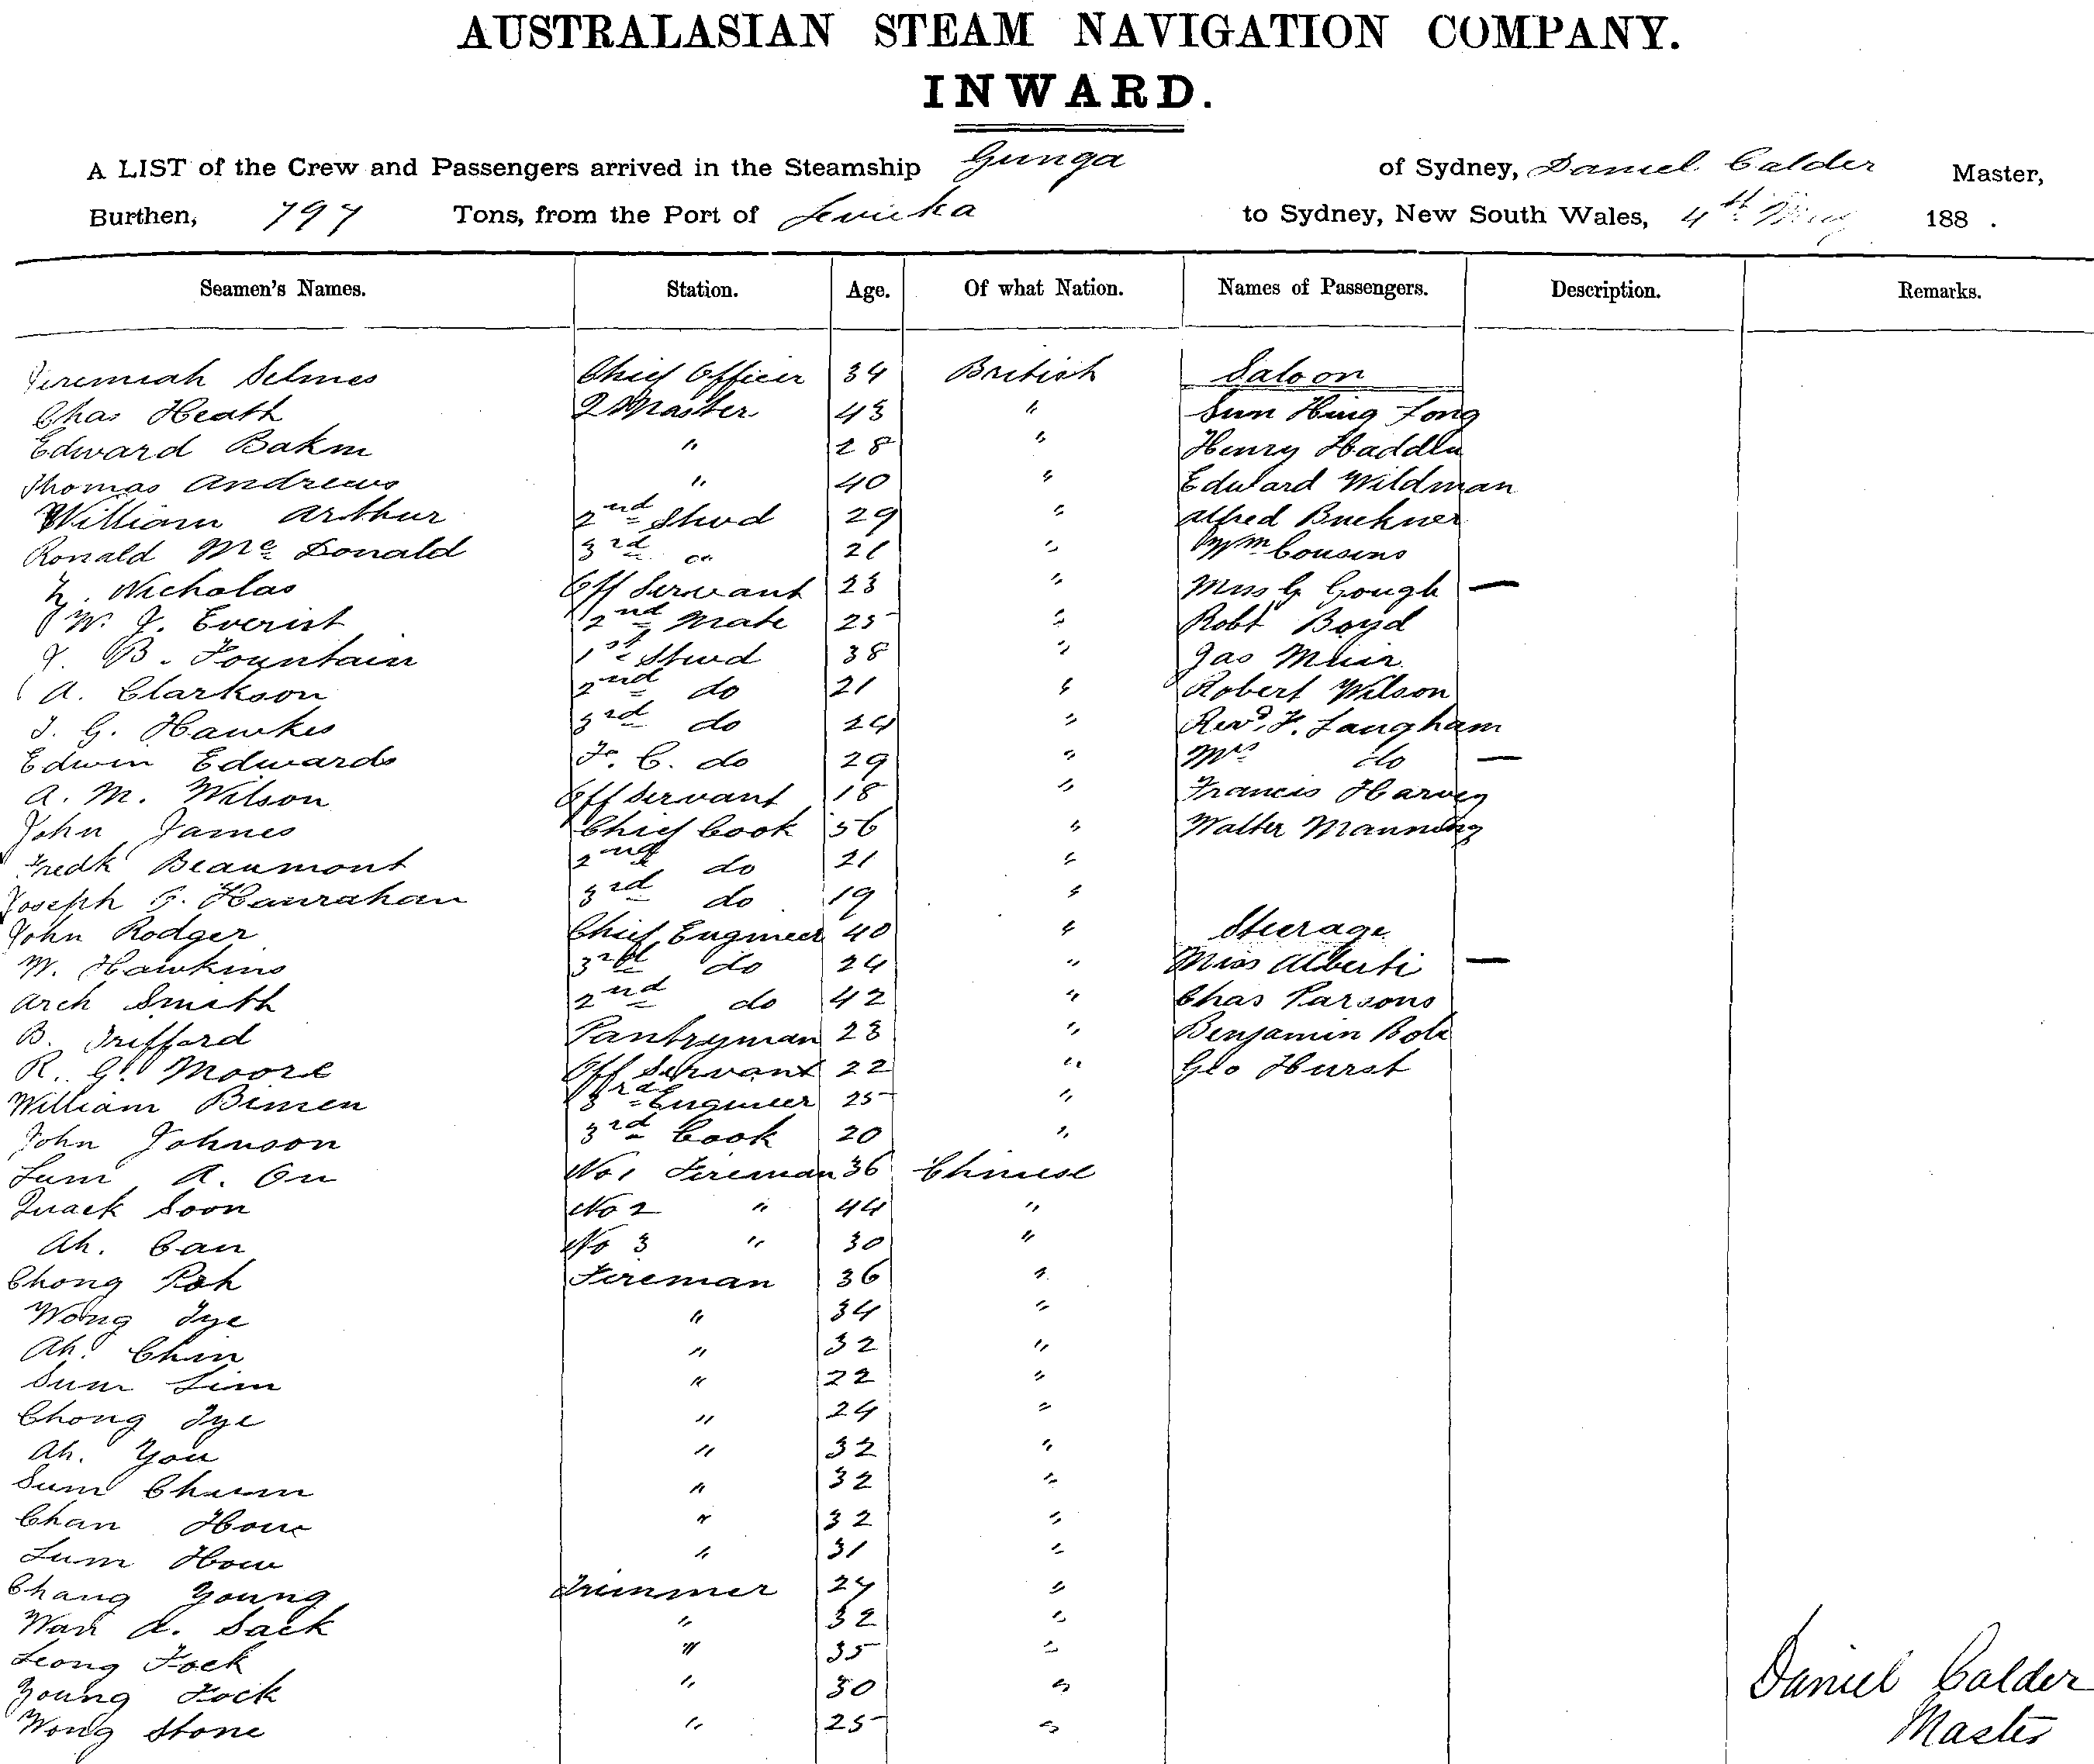 AUSTRALASIAN STEAM NAVIGATION COMPANY.
INWARD.
A LIST of the Crew and Passengers arrived in the Steamship Gunga of Sydney, Daniel Calder Master,
Burthen, 797 Tons, from the Port of Levuka to Sydney, New South Wales, 4th 188 .
Seamen's Names. Station. Age. Of what Nation. Names of Passengers. Description. Remarks.
Jeremiah Selmes Chief Officer 34 British Saloon
Chas Heath Q Master 43 " Sun Hing Fong
Edward " 28 " Henry
Thomas Andrews " 40 " Edward Wildman
William Arthur 2nd Stwd 29 " Alfred Buckner
Ronald Mc Donald 3rd " 21 " Wm Cousins
Nicholas Off Servant 23 " Miss G Gough —
W. J. Everist 2nd Mate 25 " Robt Boyd
J. B. Fountain 1st Stwd 38 " Jas Muir
A. Clarkson 2nd do 21 " Robert Wilson
J. G. Hawkes 3rd do 24 " Revd. F. Langham
Edwin Edwards F. C. do 29 " Mrs do —
A. M. Wilson Off Servant 18 " Francis Harvey
John James Chief Cook 56 " Walter Manning
Fredk Beaumont 2nd do 21 "
Joseph Hanrahan 3rd do 19 "
John Rodger Chief Engineer 40 " Steerage
W. Hawkins 3rd do 24 " Miss Alberti —
Arch Smith 2nd do 42 " Chas Parsons
B. Trifford Pantryman 23 " Benjamin
R. G. Moore Off Servant 22 " Geo Hurst
William 3rd Engineer 25 "
John Johnson 3rd Cook 20 "
Lum A. On No 1 Fireman 36 Chinese
Quack Soon No 2 " 44 "
Ah. Can No 3 " 30 "
Chong Poh Fireman 36 "
Wong Tye " 34 "
Ah. Chin " 32 "
Sum Lim " 22 "
Chong Tye " 24 "
Ah. You " 32 "
Sum " 32 "
Chan How " 32 "
Lum How " 31 "
Chang Young Trimmer 27 "
Wan A. Sack " 32 "
Leong Fock " 35 "
Young Fock " 30 "
Wong Stone " 25 "
Daniel Calder
Master